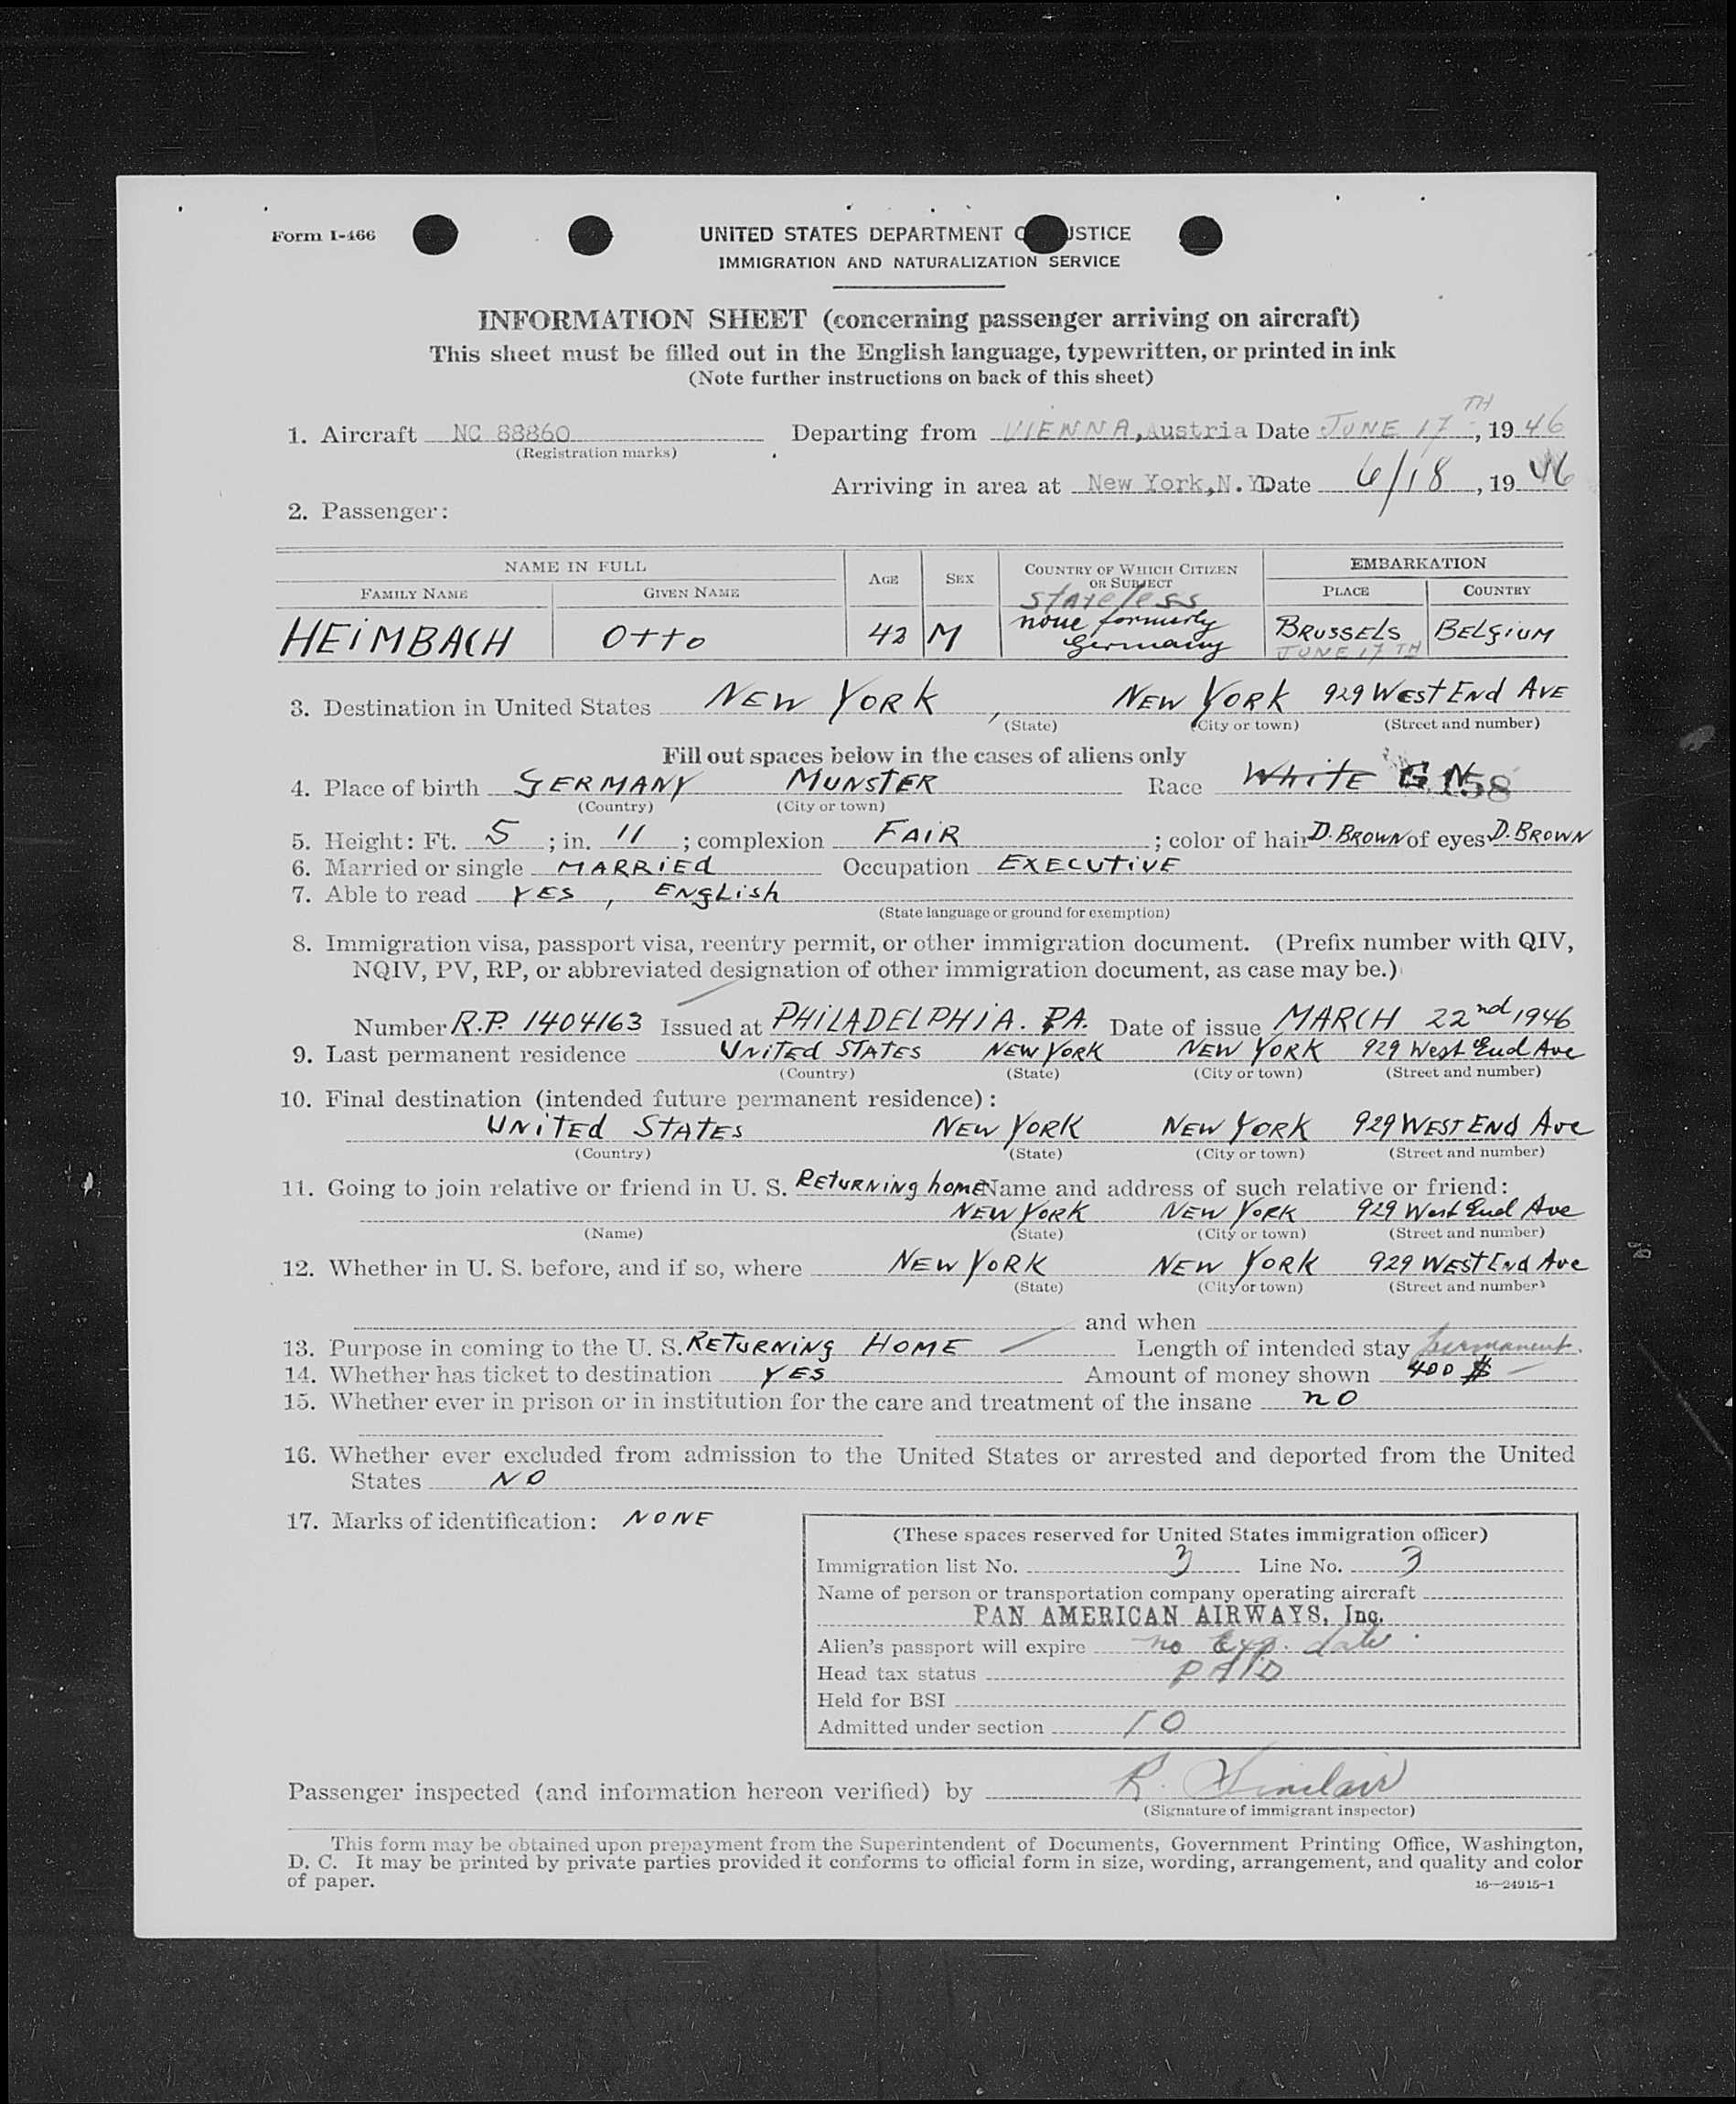 Form I-466
UNITED STATES DEPARTMENT O JUSTICE
IMMIGRATION AND NATURALIZATION SERVICE
INFORMATION SHEET (concerning passenger arriving on aircraft)
This sheet must be filled out in the English language, typewritten, or printed in ink
(Note further instructions on back of this sheet)
1. Aircraft NC 88860 Departing from VIENNA, Austria Date JUNE 17TH, 1946
(Registration marks)
Arriving in area at New York, N.Y. Date 6/18, 1946
2. Passenger:
NAME IN FULL AGE SEX COUNTRY OF WHICH CITIZEN OR SUBJECT EMBARKATION
FAMILY NAME GIVEN NAME PLACE COUNTRY
stateless
HEIMBACH Otto 42 M none formerly Germany BRUSSELS BELGIUM
JUNE 17 TH
3. Destination in United States NEW YORK, NEW YORK 929 WEST End AVE
(State) (City or town) (Street and number)
Fill out spaces below in the cases of aliens only
4. Place of birth GERMANY MUNSTER Race White G N 158
(Country) (City or town)
5. Height: Ft. 5; in. 11; complexion FAIR; color of hair D. BROWN of eyes D. BROWN
6. Married or single MARRIEd Occupation EXECUTIVE
7. Able to read YES, ENgLish
(State language or ground for exemption)
8. Immigration visa, passport visa, reentry permit, or other immigration document. (Prefix number with QIV,
NQIV, PV, RP, or abbreviated designation of other immigration document, as case may be.)
Number R.P. 1404163 Issued at PHILADELPHIA. PA. Date of issue MARCH 22nd 1946
9. Last permanent residence UNITEd STATES NEW YORK NEW YORK 929 West End Ave
(Country) (State) (City or town) (Street and number)
10. Final destination (intended future permanent residence):
UNITEd STATES NEW YORK NEW YORK 929 WEST ENd Ave
(Country) (State) (City or town) (Street and number)
11. Going to join relative or friend in U. S. RETURNING home Name and address of such relative or friend:
NEW YORK NEW YORK 929 West End Ave
(Name) (State) (City or town) (Street and number)
12. Whether in U. S. before, and if so, where NEW YORK NEW YORK 929 WEST End Ave
(State) (City or town) (Street and number)
and when
13. Purpose in coming to the U. S. RETURNING HOME Length of intended stay permanent.
14. Whether has ticket to destination YES Amount of money shown 400 $
15. Whether ever in prison or in institution for the care and treatment of the insane no
16. Whether ever excluded from admission to the United States or arrested and deported from the United
States NO
17. Marks of identification: NONE
(These spaces reserved for United States immigration officer)
Immigration list No. 3 Line No. 3
Name of person or transportation company operating aircraft
PAN AMERICAN AIRWAYS, Inc.
Alien's passport will expire no exp. date.
Head tax status PAID
Held for BSI
Admitted under section 10
Passenger inspected (and information hereon verified) by R. Sinclair
(Signature of immigrant inspector)
This form may be obtained upon prepayment from the Superintendent of Documents, Government Printing Office, Washington,
D. C. It may be printed by private parties provided it conforms to official form in size, wording, arrangement, and quality and color
of paper.
16—24915-1